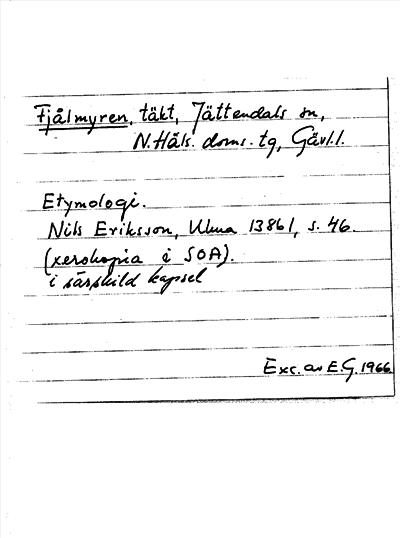 Fjålmyren, täkt, Jättendals sn,
N. Häls. doms. tg, Gävl. l.
Etymologi.
Nils Eriksson, Ulma 13861, s. 46.
(xerokopia i SOA).
i särskild kapsel
Exc. av E.G. 1966